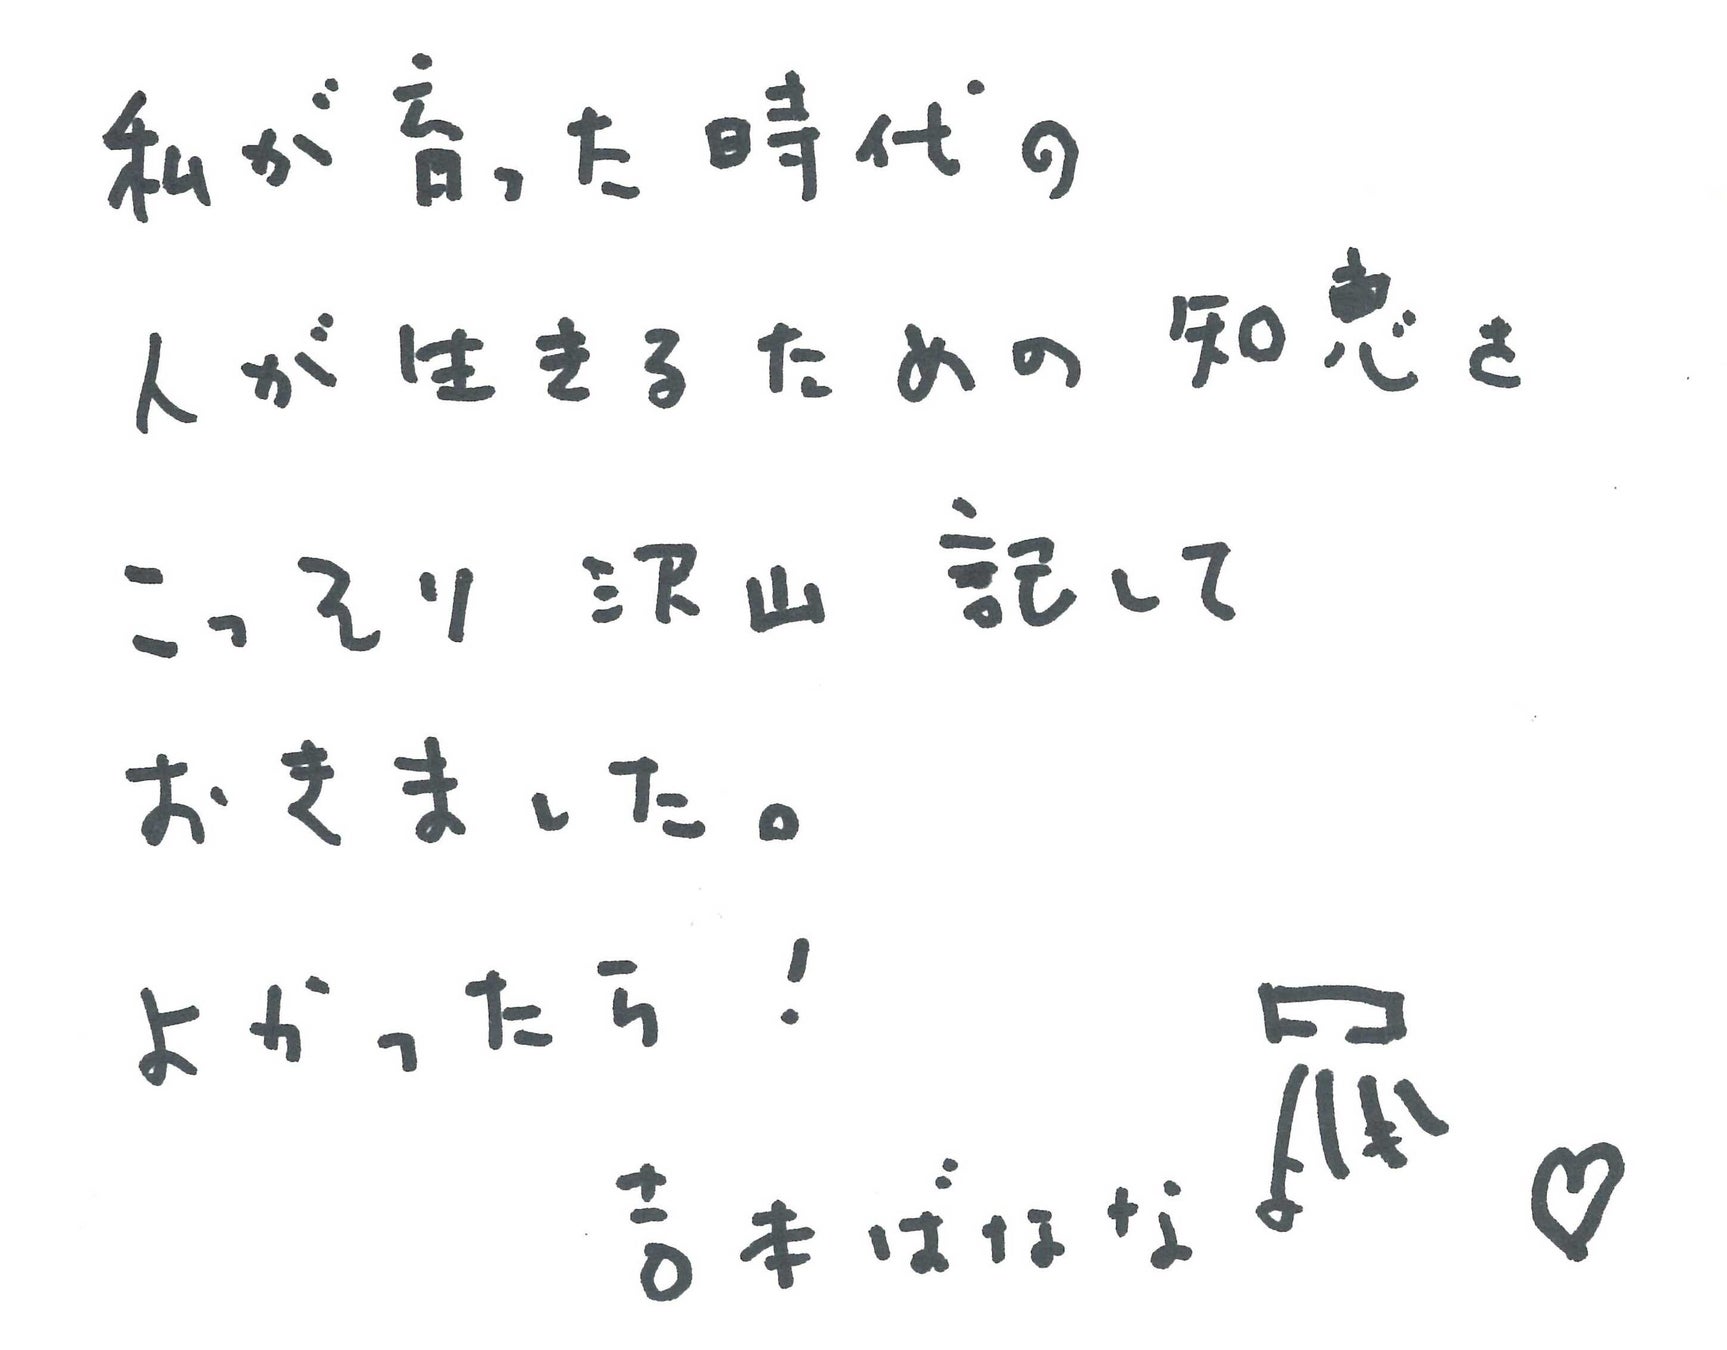 私が育った時代の
人が生きるための 知恵を
こっそり 沢山 記して
おきました。
よかったら！
吉本ばなな ♡